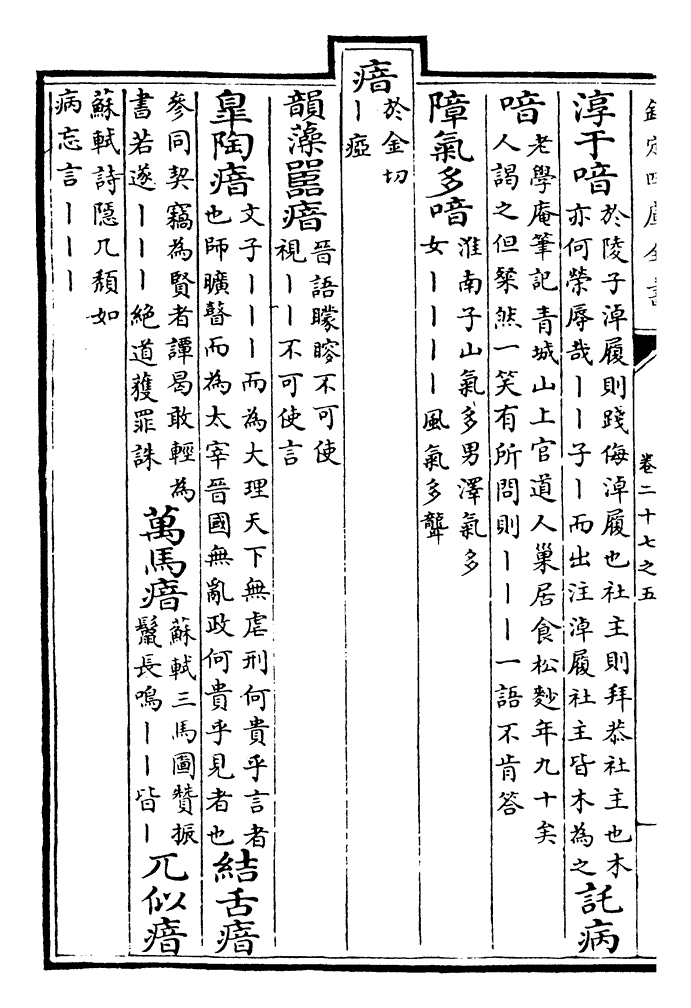 欽定四庫全書
卷二十七之五
淳于喑於陵子淖履則踐侮淖履也社主則拜恭社主也木
亦何榮辱哉丨丨子丨而出注淖履社主皆木為之託病
喑老學庵筆記青城山上官道人巢居食松麨年九十矣
人謁之但粲然一笑有所問則丨丨丨一語不肯答
障氣多喑淮南子山氣多男澤氣多
女丨丨丨丨風氣多聾
瘖於金切
丨瘂
韻藻嚚瘖晉語矇瞍不可使
視丨丨不可使言
皐陶瘖文子丨丨丨而為大理天下無虐刑何貴乎言者
也師曠瞽而為太宰晉國無亂政何貴乎見者也結舌瘖
參同契竊為賢者譚曷敢輕為
書若遂丨丨丨絶道獲罪誅萬馬瘖蘇軾三馬圖贊振
鬛長鳴丨丨皆丨兀似瘖
蘇軾詩隱几頽如
病忘言丨丨丨